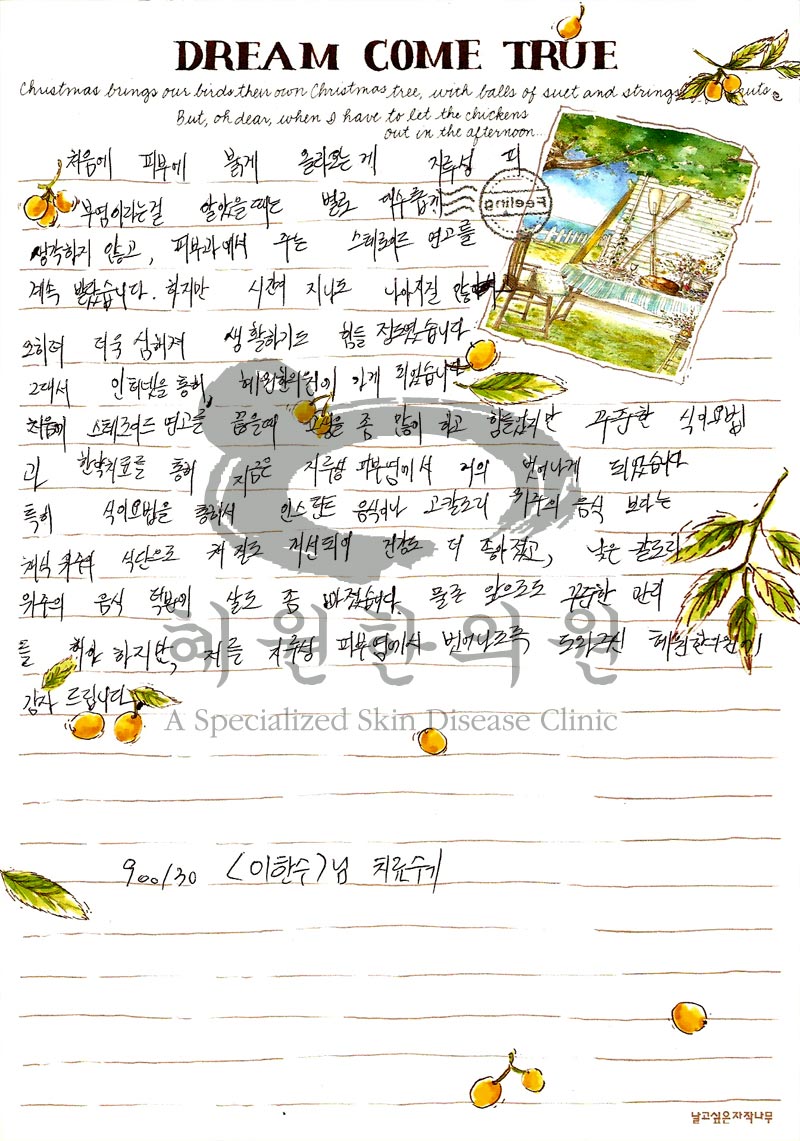 DREAM COME TRUE
Christmas brings our birds their own Christmas tree, with balls of suet and strings
But, oh dear, when I have to let the chickens
out in the afternoon...
Feeling
처음에 피부에 붉게 올라오는게 지루성 피
부염이라는걸 알았을때는 별로 대수롭게
생각하지 않고, 피부과에서 주는 스테로이드 연고를
계속 발랐습니다. 하지만 시간이 지나도 나아지질 않
오히려 더욱 심해져 생활하기도 힘들 정도였습니다
그래서 인터넷을 통해, 혜원한의원이 알게 되었습니다
처음에 스테로이드 연고를 끊을때 고생을 좀 많이 하고 힘들었지만 꾸준한 식이요법
과 한약치료를 통해 지금은 지루성 피부염에서 거의 벗어나게 되었습니다
특히 식이요법을 통해서 인스턴트 음식이나 고칼로리 위주의 음식 보다는
채식 위주의 식단으로 체질도 개선되어 건강도 더 좋아졌고, 낮은 칼로리
위주의 음식 덕분에 살도 좀 빠졌습니다. 물론 앞으로도 꾸준한 관리
를 해야 하지만, 저를 지루성 피부염에서 벗어나도록 도와주신 혜원한의원에
감사 드립니다
혜원한의원
A Specialized Skin Disease Clinic
900/30 <이한수>님 치료수기
날고싶은자작나무